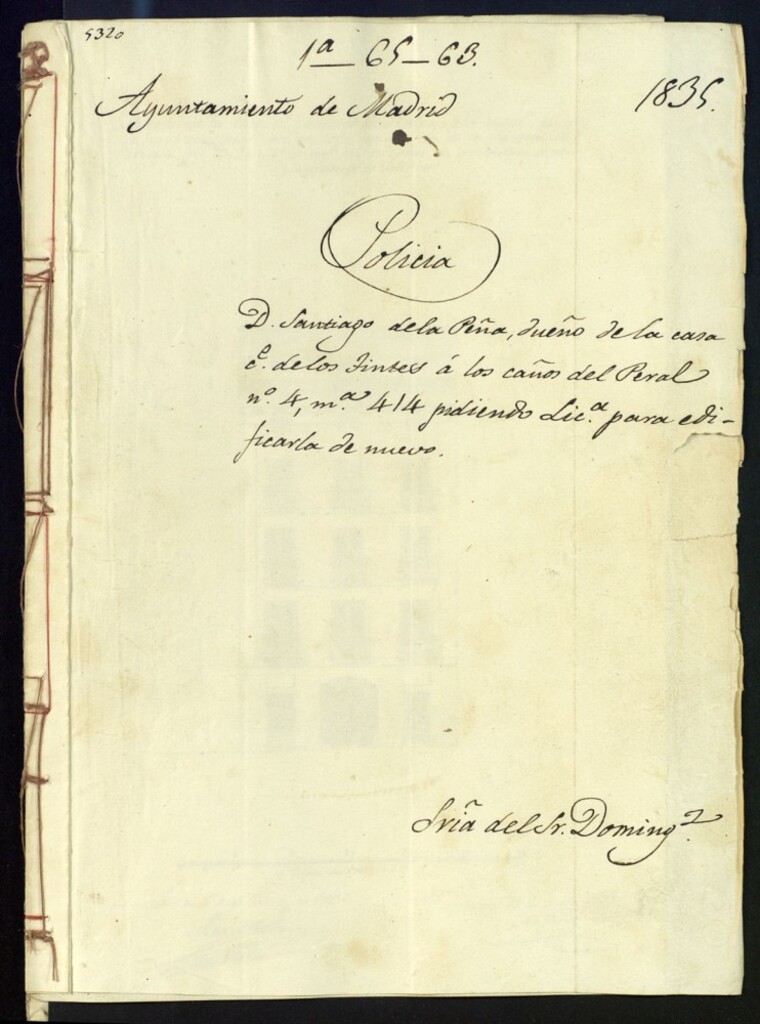 5320
1ª — 65 — 63.
Ayuntamiento de Madrid
1835.
Policia
D. Santiago dela Peña, dueño de la casa
c.e de los Tintes á los caños del Peral
nº. 4, m.ª 414 pidiendo Lic.ª para edi-
ficarla de nuevo.
Sriã del Sr. Doming.z